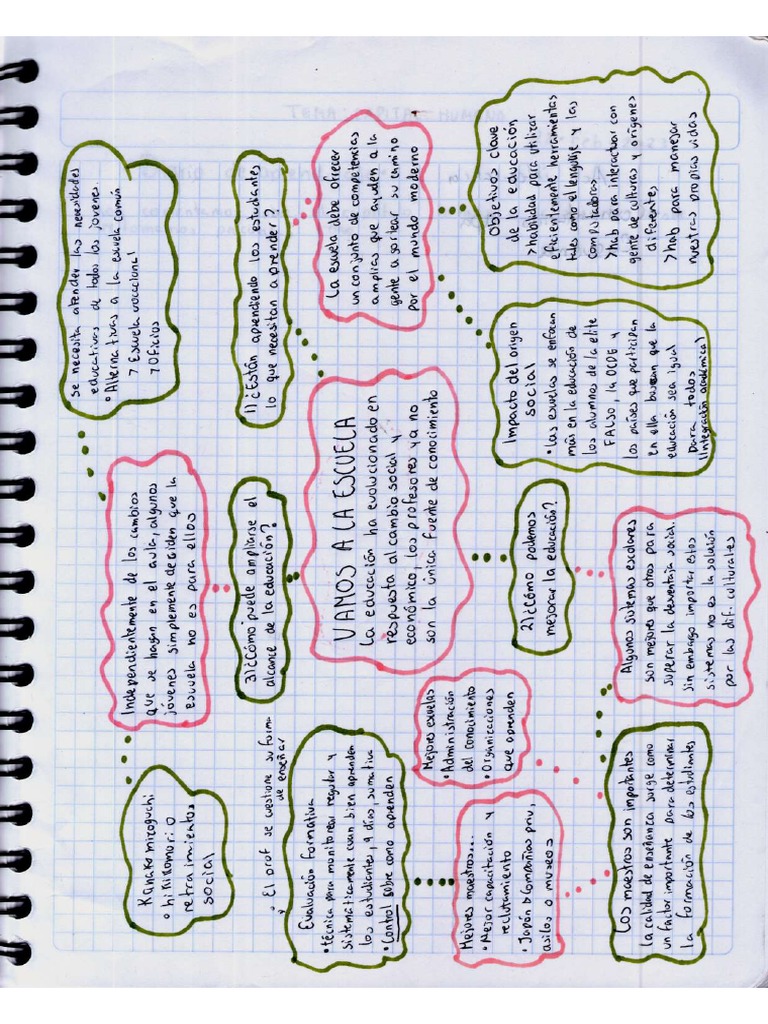 VAMOS A LA ESCUELA
La educación ha evolucionado en
respuesta al cambio social y
económico, los profesores ya no
son la única fuente de conocimiento
1) ¿Están aprendiendo los estudiantes
lo que necesitan aprender?
La escuela debe ofrecer
un conjunto de competencias
amplias que ayuden a la
gente a sortear su camino
por el mundo moderno
Objetivos clave
de la educación
> habilidad para utilizar
eficientemente herramientas
tales como el lenguaje y las
computadoras
> hab para interactuar con
gente de culturas y orígenes
diferentes
> hab para manejar
nuestras propias vidas
Impacto del origen
social
• Las escuelas se enfocan
más en la educación de
los alumnos de la elite
FALSO, la OCDE y
los países que participan
en ella buscan que la
educación sea igual
para todos
(Integración académica)
2) ¿Cómo podemos
mejorar la educación?
Algunos sistemas escolares
son mejores que otros para
superar la desventaja social.
sin embargo importar estos
sistemas no es la solución
por las dif. culturales
Los maestros son importantes
la calidad de enseñanza surge como
un factor importante para determinar
la formación de los estudiantes
Mejores escuelas
• Administración
del conocimiento
• Organizaciones
que aprenden
Mejores maestros...
• Mejor capacitación y
reclutamiento
• Japón → Compañías priv,
asilos o museos
Evaluación formativa
• técnica para monitorear regular y
sistemáticamente cuan bien aprenden
los estudiantes, 4 días, sumativa
• Control sobre como aprenden
El prof se cuestione su forma
de enseñar
3) ¿Cómo puede ampliarse el
alcance de la educación?
Independientemente de los cambios
que se hagan en el aula, algunos
jóvenes simplemente deciden que la
escuela no es para ellos
se necesita atender las necesidades
educativas de todos los jóvenes
• Alternativas a la escuela común
> Escuela vocacional
> Oficios
hikikomori o
retraimientos
social